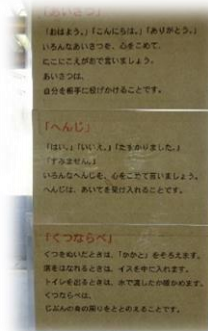 「あいさつ」
「おはよう。」「こんにちは。」「ありがとう。」
いろんなあいさつを、心をこめて、
にこにこえがおで言いましょう。
あいさつは、
自分を相手に投げかけることです。
「へんじ」
「はい。」「いいえ。」「たすかりました。」
「すみません。」
いろんなへんじを、心をこめて言いましょう。
へんじは、あいてを受け入れることです。
「くつならべ」
くつをぬいだときは、「かかと」をそろえます。
席をはなれるときは、イスを中に入れます。
トイレを出るときは、水で流したか確かめます。
くつならべは、
じぶんの身の周りをととのえることです。